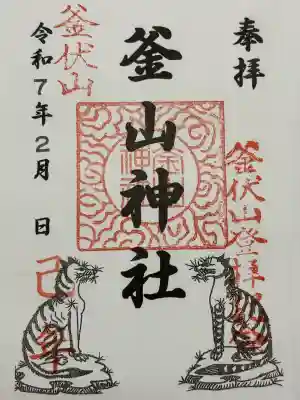 奉拝
釜伏山登拝
釜山神社
釜伏山
令和7年2月 日
巳年